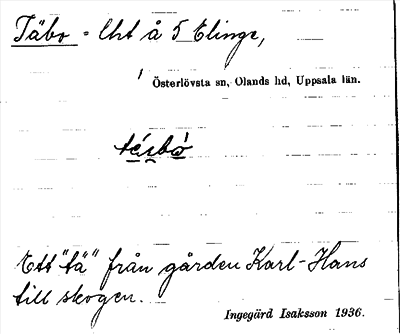 Täbo - Lht å 5 Elinge,
Österlövsta sn, Olands hd, Uppsala län.
Ett "tä" från gården Karl-Hans
till skogen.
Ingegärd Isaksson 1936.